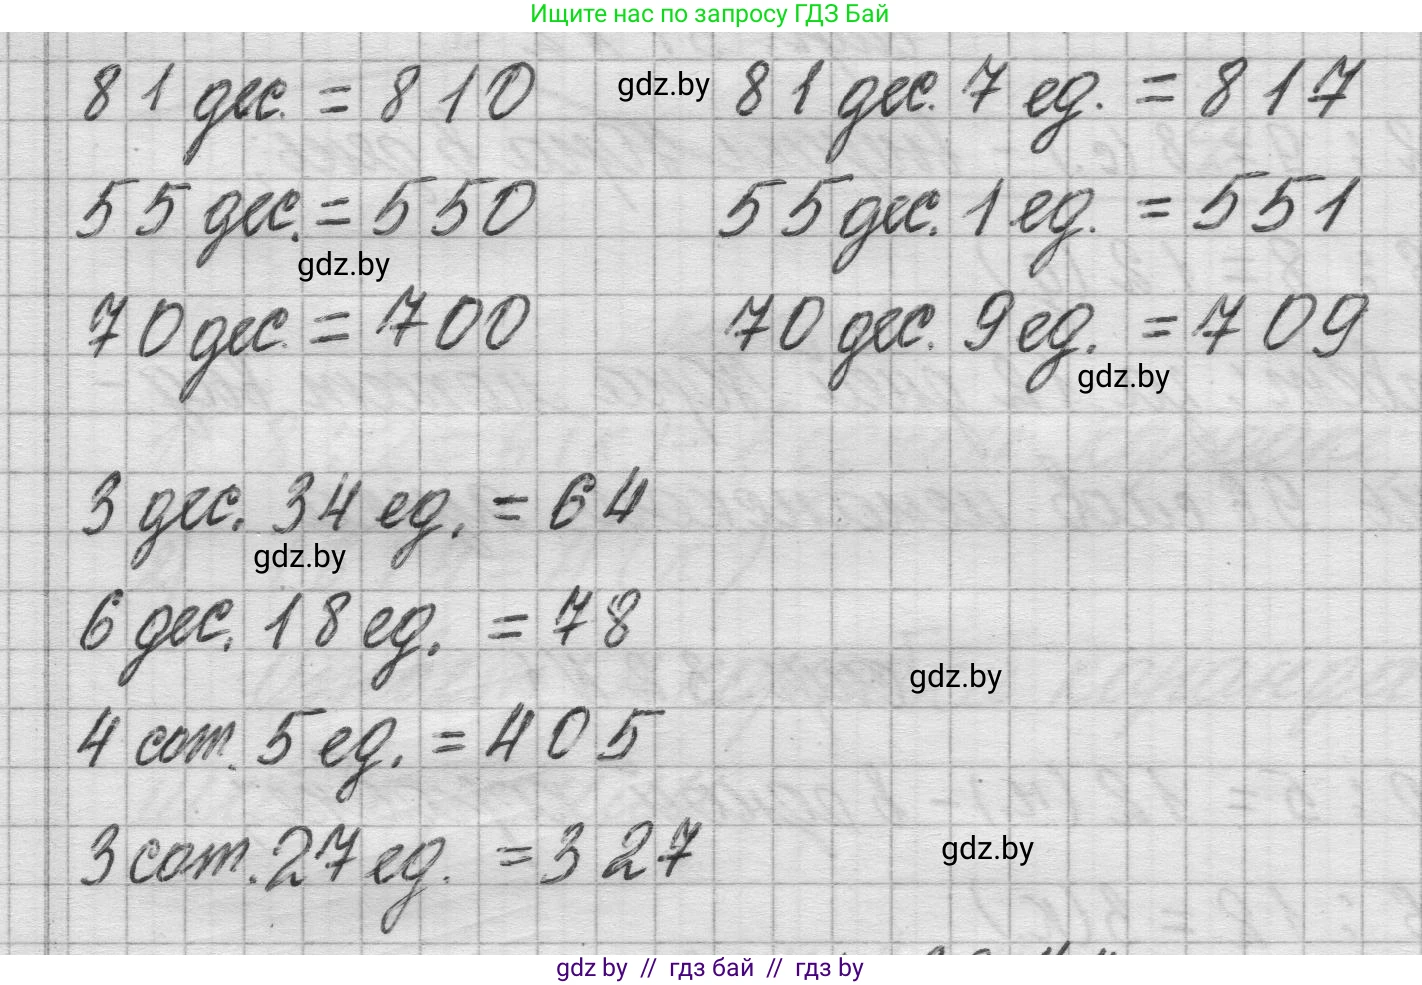 Ищите нас по запросу ГДЗ Бай
81 дес. = 810 gdz.by 81 дес. 7 ед. = 817
55 дес. = 550 55 дес. 1 ед. = 551
gdz.by
70 дес. = 700 70 дес. 9 ед. = 709
gdz.by
3 дес. 34 ед. = 64
gdz.by
6 дес. 18 ед. = 78
gdz.by
4 сот. 5 ед. = 405
3 сот. 27 ед. = 327
gdz.by
gdz by // гдз бай // гдз by